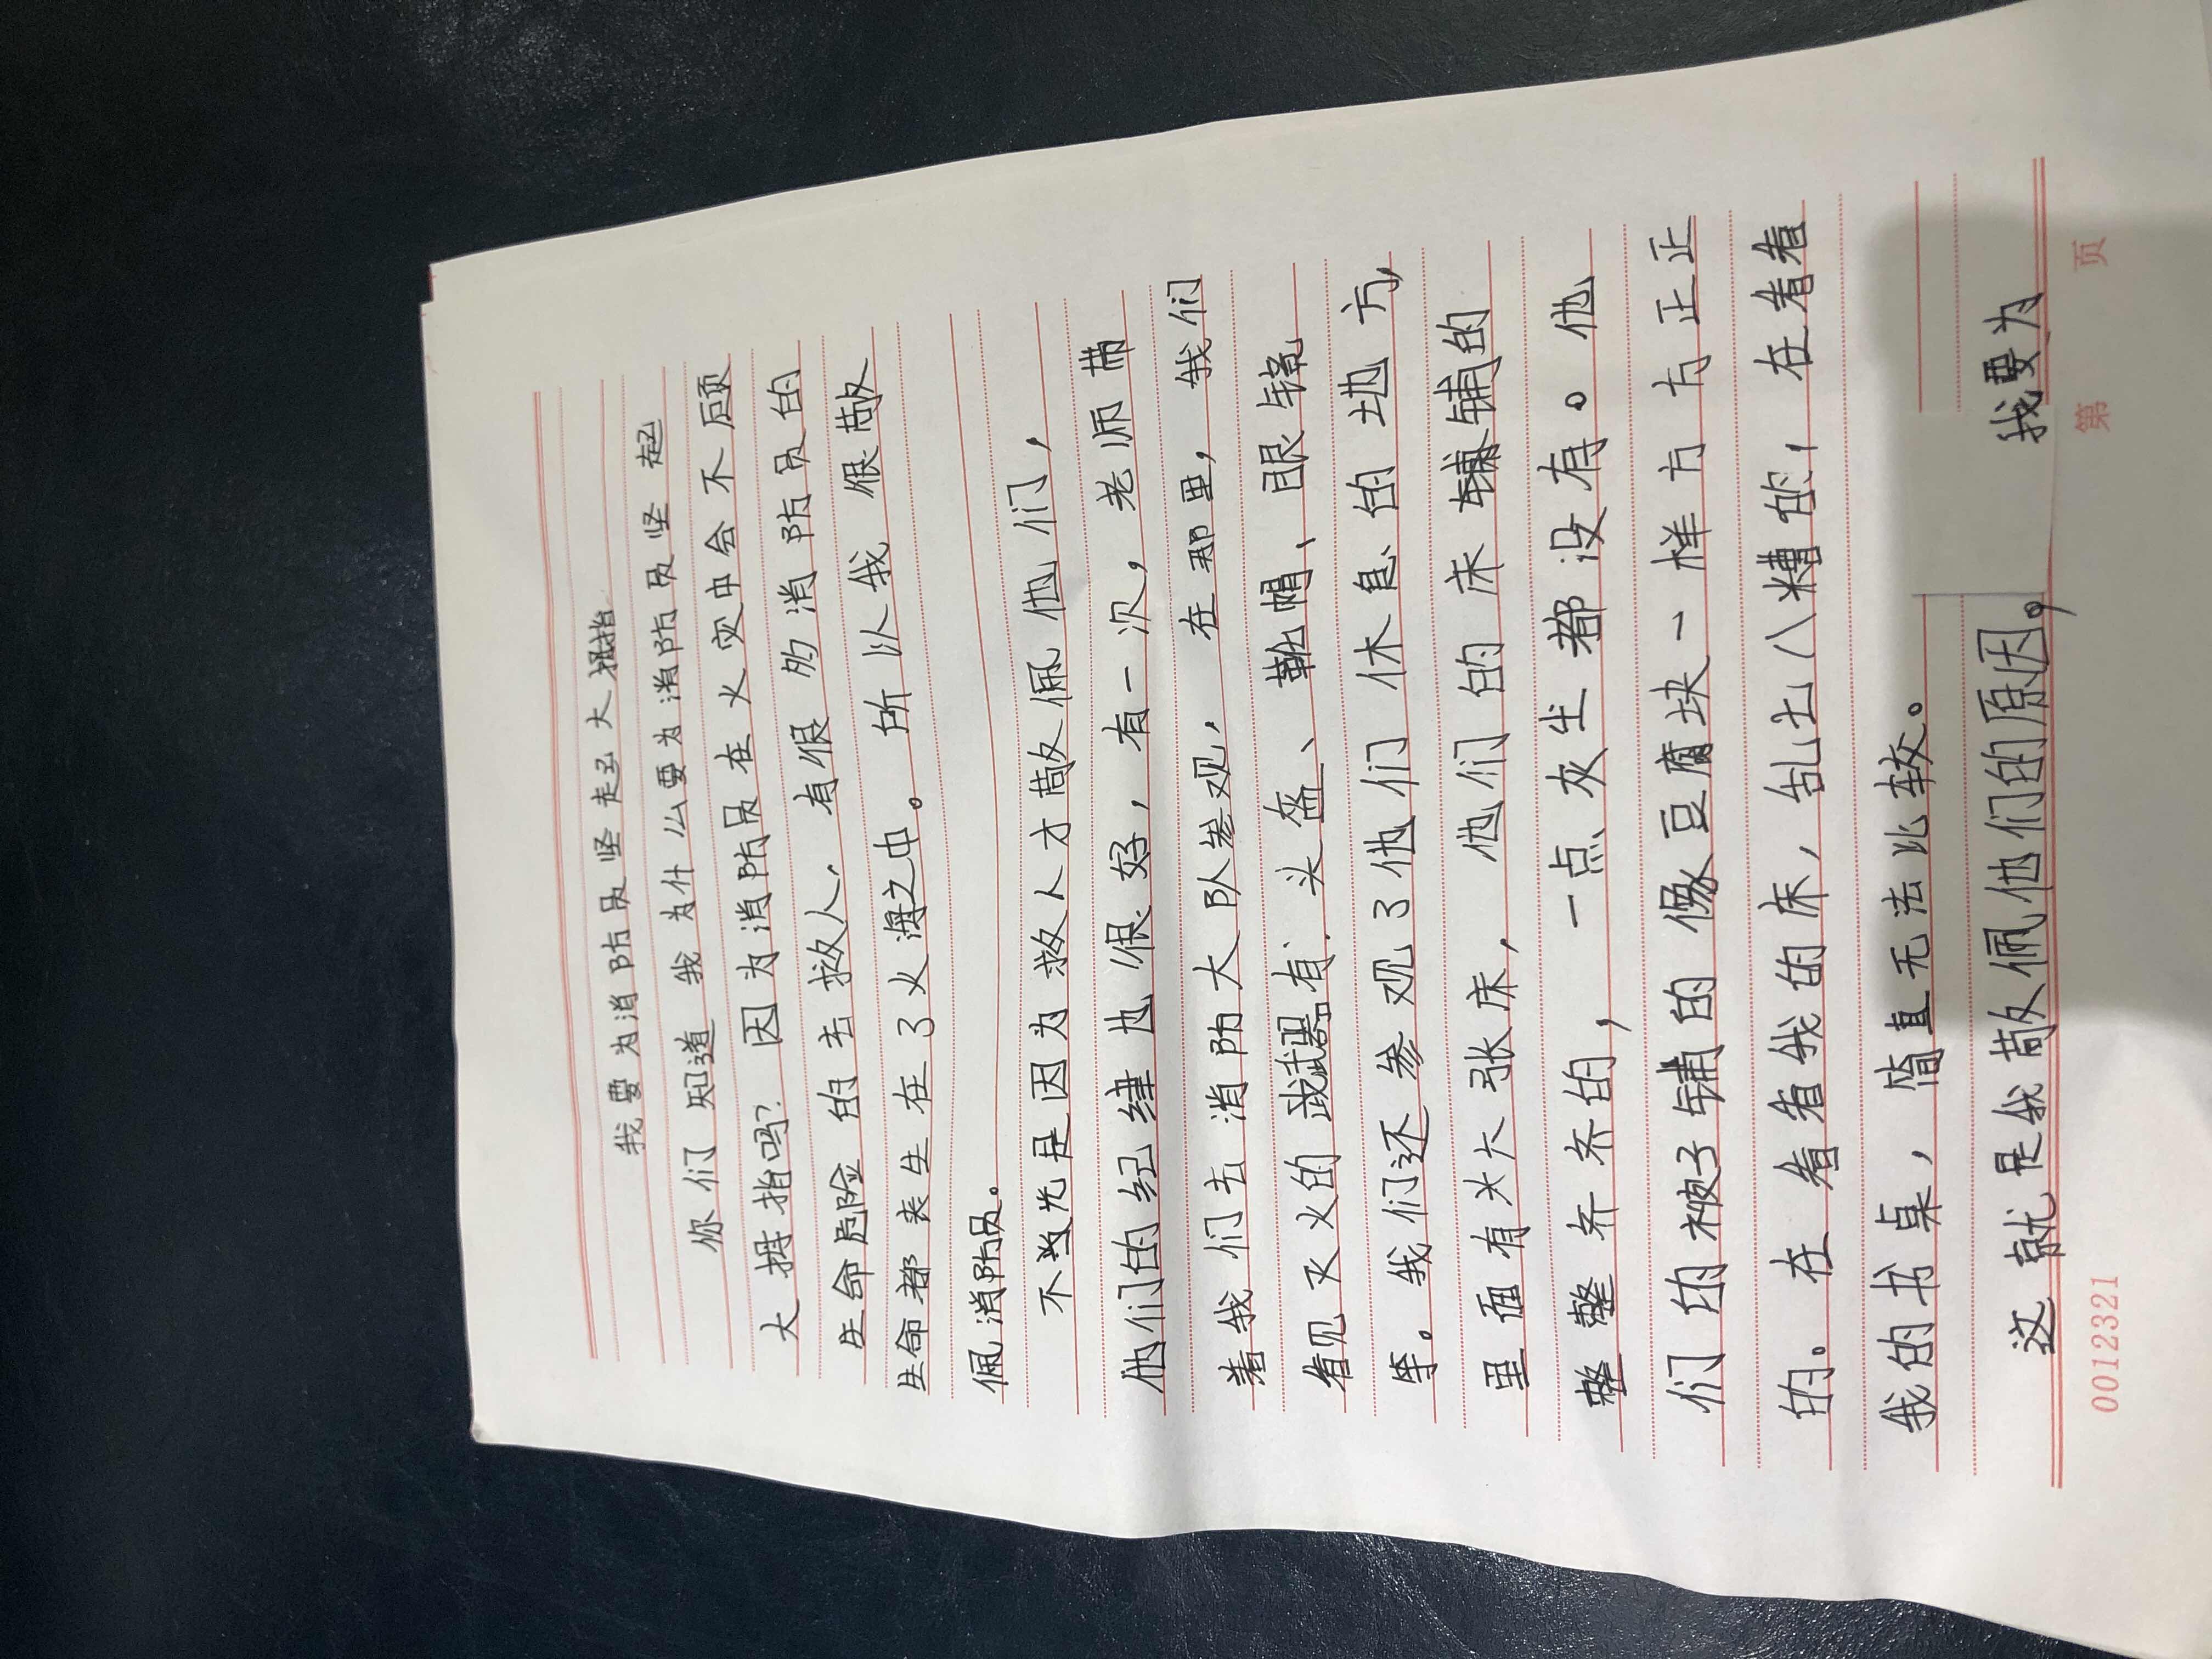 我要为消防员坚起大拇指
你们知道我为什么要为消防员坚起
大拇指吗？因为消防员在火灾中会不顾
生命危险的去救人，有很多消防员的
生命都丧生在了火海之中。所以我很敬
佩消防员。
不光是因为救人才敬佩他们，
他们的纪律也很好，有一次，老师带
着我们去消防大队参观，在那里，我们
看见灭火的武器有：头盔、靴帽、眼镜
等。我们还参观了他们休息的地方，
里面有六张床，他们的床铺的
整整齐齐的，一点灰尘都没有。他
们的被子铺的像豆腐块一样方方正正
的。在看看我的床，乱七八糟的，在看看
我的书桌，简直无法比较。
这就是我敬佩他们的原因。我要为
0012321 第 页